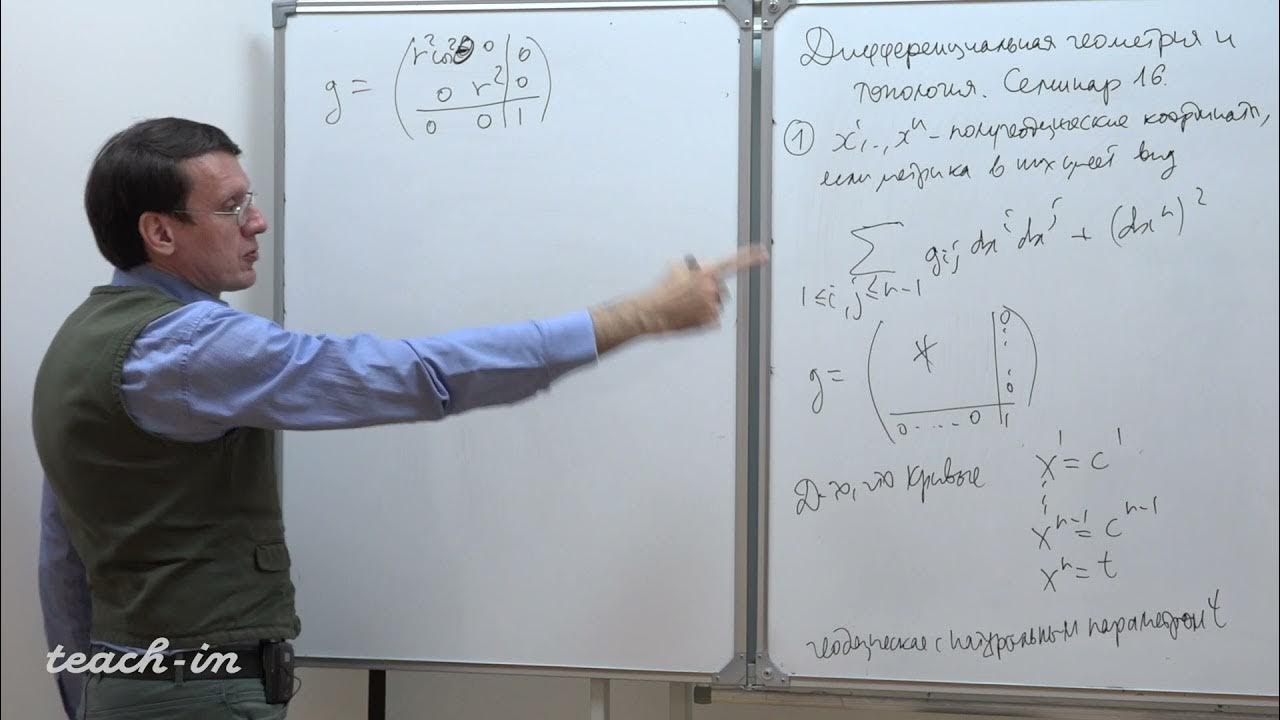 g = ( r² cos² θ 0 | 0
0 r² | 0
0 0 | 1 )
Дифференциальная геометрия и
топология. Семинар 16.
① x¹,..,xⁿ – полугеодезические координаты,
если метрика в них имеет вид
∑ gᵢⱼ dxⁱ dxʲ + (dxⁿ)²
1 ≤ i,j ≤ n-1
g = ( * | 0 ⋮ 0
0 ... 0 | 1 )
Д-ть, что кривые x¹ = c¹
⋮
xⁿ⁻¹ = cⁿ⁻¹
xⁿ = t
геодезические с натуральным параметром t
teach-in